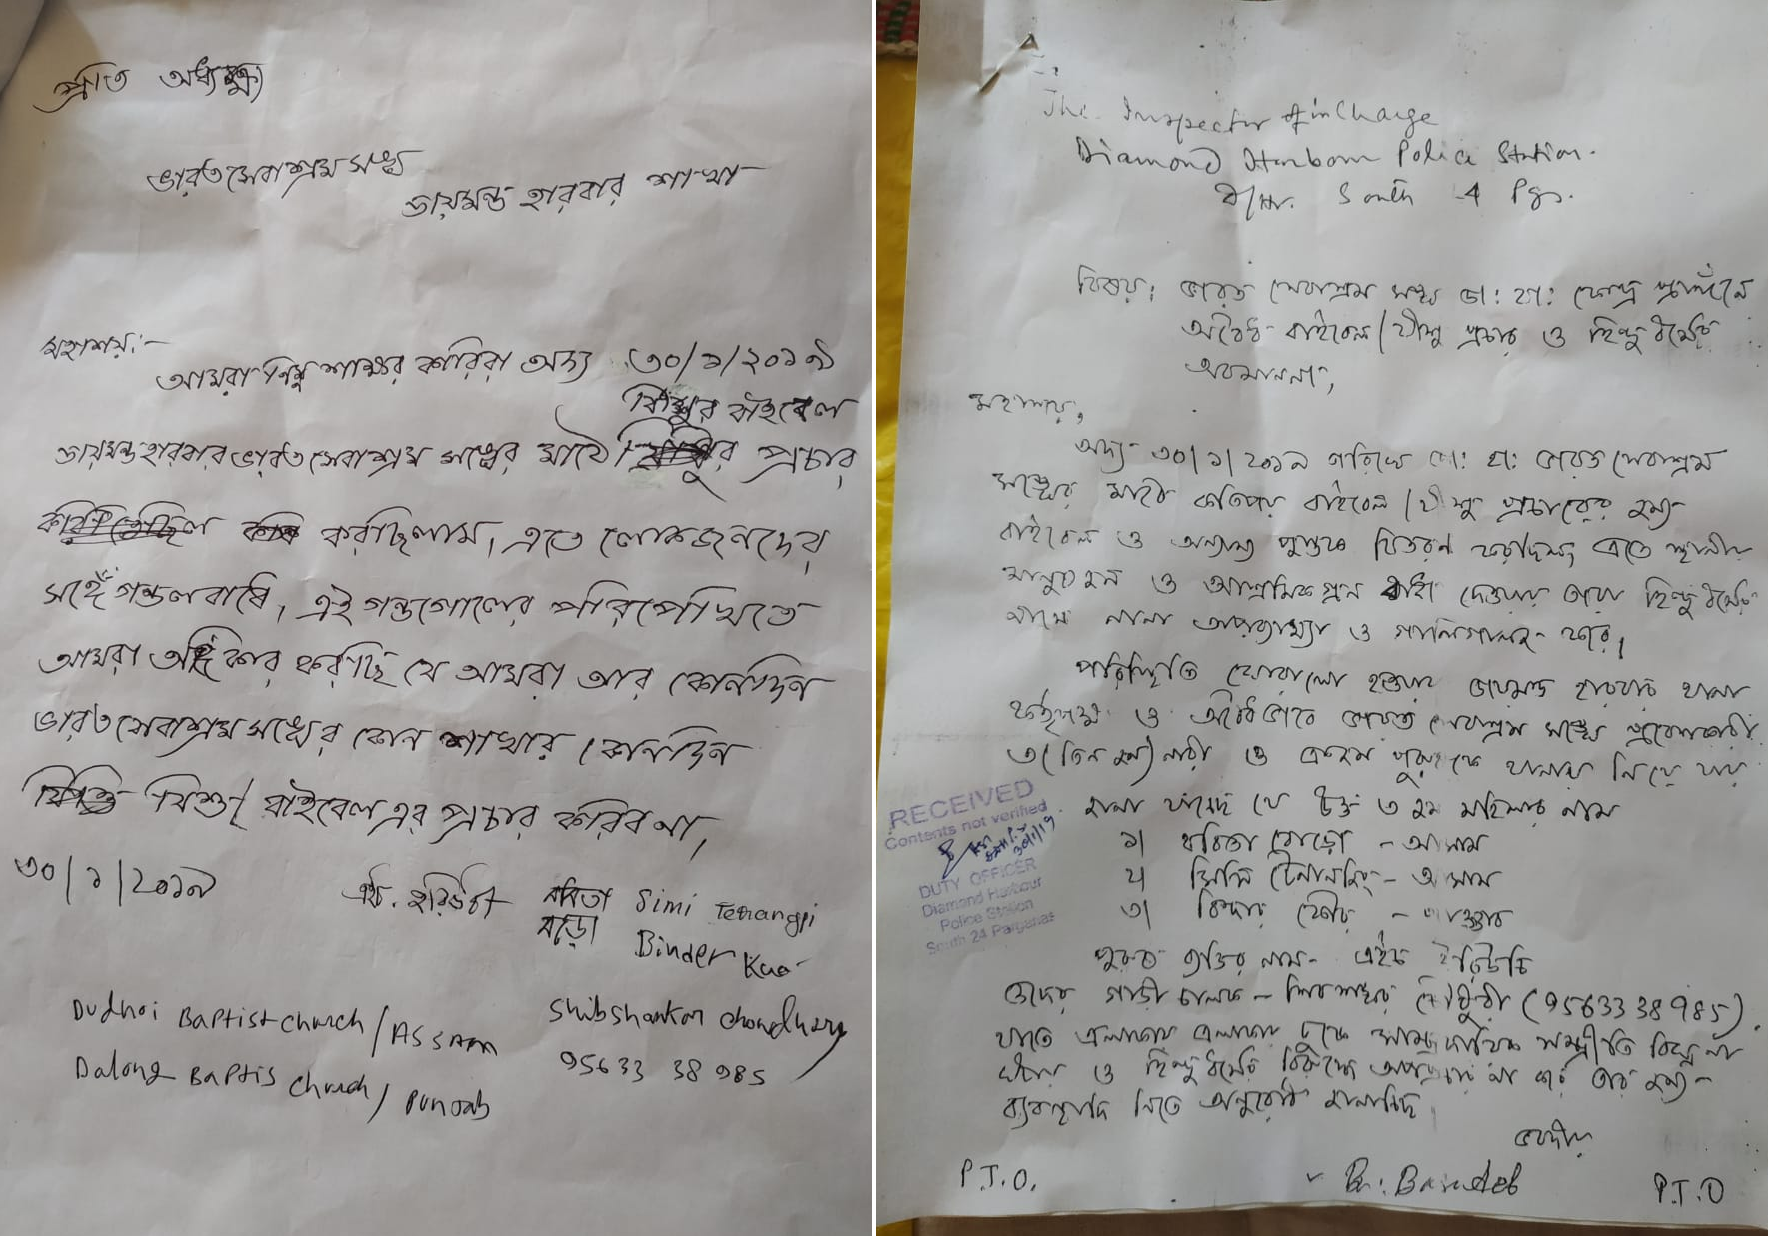 প্রতি অধ্যক্ষ্য
ভারত সেবাশ্রম সঙ্ঘ
ডায়মন্ড হারবার শাখা
মহাশয়:-
আমরা নিম্ন শাক্ষর কারিরা অদ্য ৩০/১/২০১৯
যিশুর বাইবেল
ডায়মন্ড হারবার ভারত সেবাশ্রম সঙ্ঘের মাঠে প্রচার
করছিলাম, এতে লোকজনদের
সঙ্গে গন্ডগোল বাধে, এই গন্ডগোলের পরিপেখিতে
আমরা অঙ্গিকার করছি যে আমরা আর কোনদিন
ভারত সেবাশ্রম সঙ্ঘের কোন শাখার কোনদিন
যিশু/বাইবেল এর প্রচার করিব না,
৩০/১/২০১৯
এইচ. হরিউচি নবিতা Simi Terangpi
বড়ো Binder Kaur
Dudhoi Baptist Church/Assam Shibshankar Chowdhury
Dalong Baptis Church/Punjab 95633 38985
The Inspector in Charge
Diamond Harbour Police Station.
D/Hr. South 24 Pgs.
বিষয়: ভারত সেবাশ্রম সঙ্ঘ ডা: হা: কেন্দ্র প্রাঙ্গনে
অবৈধ বাইবেল/যীশু প্রচার ও হিন্দু ধর্মের
অবমাননা,
মহাশয়,
অদ্য ৩০/১/২০১৯ তারিখে ডা: হা: ভারত সেবাশ্রম
সঙ্ঘের মাঠে কতিপয় বাইবেল/যীশু প্রচারের জন্য
বাইবেল ও অন্যান্য পুস্তক বিতরণ করছিল, এতে স্থানীয়
মানুষজন ও আশ্রমিকগন বাধা দেওয়ায় তারা হিন্দু ধর্মের
নামে নানা অপব্যাখ্যা ও গালিগালাজ করে,
পরিস্থিতি ঘোরালো হওয়ায় ডায়মন্ড হারবার থানা
কর্তৃপক্ষ ও অবৈধভাবে ভারত সেবাশ্রম সঙ্ঘে প্রবেশকারী
৩ (তিন জন) নারী ও একজন পুরুষকে থানায় নিয়ে যায়
জানা যায় যে উক্ত ৩ জন মহিলার নাম
১| বড়ো - আসাম
২| সিমি টেরাংপি - আসাম
৩| বিন্দার কৌর - পাঞ্জাব
পুরুষ ব্যক্তির নাম- এইচ হরিউচি
ওদের গাড়ী চালক - শিবশঙ্কর চৌধুরী (95633 38985).
যাতে এলাকায় এলাকায় ঢুকে সাম্প্রদায়িক সম্প্রীতি বিঘ্ন না
ঘটায় ও হিন্দু ধর্মের বিরুদ্ধে অপপ্রচার না করে তার জন্য
ব্যবস্থাদি নিতে অনুরোধ জানাচ্ছি,
ভবদীয়
P.T.O. Br. Basudeb P.T.O
RECEIVED
Contents not verified
30/1/19
DUTY OFFICER
Diamond Harbour
Police Station
South 24 Parganas